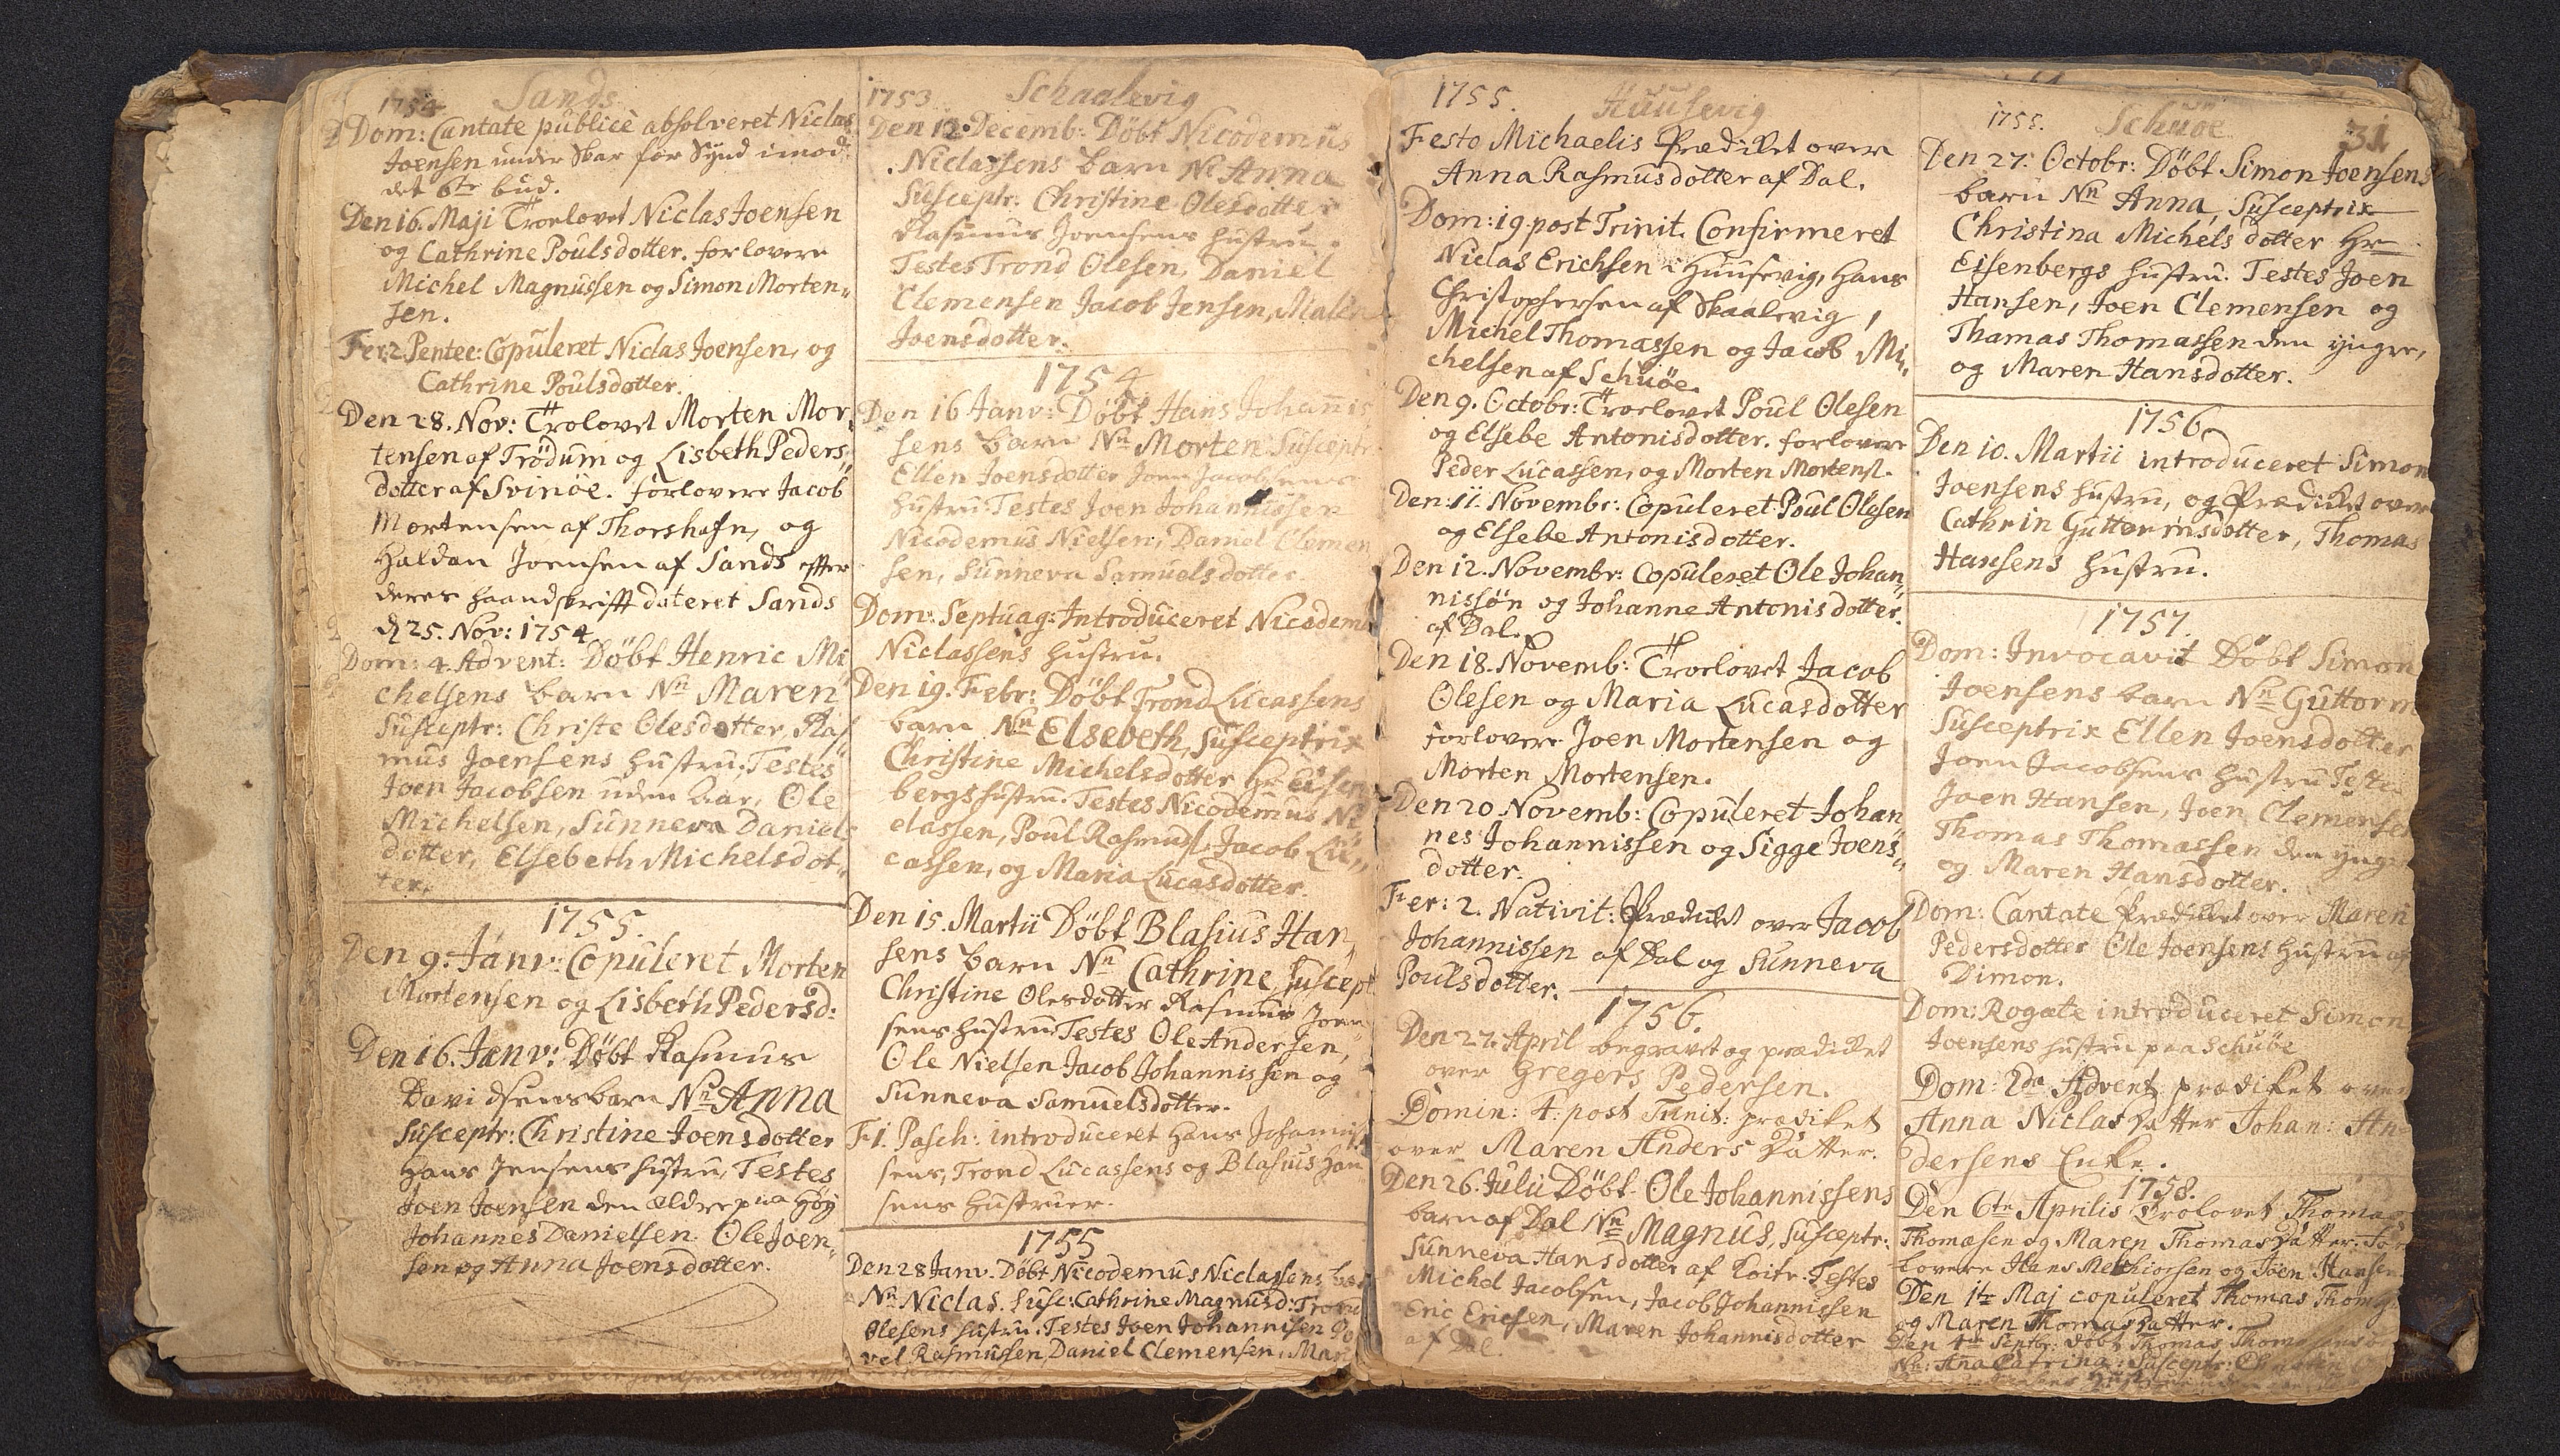 1754 Sands
Dom: Cantate publicè absolveret Niclas
Joensen under skar for Synd imod
det 6te bud.
Den 16. Maji Troelovet Niclas Joensen
og Cathrine Poulsdotter. forlovere
Michel Magnussen og Simon Morten„
sen.
Fer: 2 Pentec: Copuleret Niclas Joensen, og
Cathrine Poulsdotter.
Den 28. Nov: Trolovet Morten Mor„
tensen af Trödum og Lisbeth Peders„
dotter af Svinöe. forlovere Jacob
Mortensen af Thorshafn, og
Haldan Joensen af Sands efter
deres haandskrifft dateret Sands
d 25. Nov: 1754
Dom: 4 Advent: Döbt Henric Mi
chelsens barn Nn Maren
Susceptr: Christe Olesdotter, Ras
mus Joensens hustru; Testes
Joen Jacobsen uden Aar, Ole
Michelsen, Sunneva Daniels
dotter, Elsebeth Michelsdot„
ter.
1755.
Den 9: Janv: Copuleret Morten
Mortensen og Lisbeth Pedersd:
Den 16. Janv: Döbt Rasmus
Davidsens barn Nn Anna
Susceptr: Christine Joensdotter
Hans Jensens hustru, Testes
Joen Joensen den ældre paa Höy
Johannes Danielsen. Ole Joen„
sen og Anna Joensdotter.
1753 Schaalevig
Den 12. Decemb: Döbt Nicodemus
Niclassens barn Nn Anna
Susceptr: Christine Olesdotter
Rasmus Joensens hustru.
Testes Trond Olesen, Daniel
Clemensen Jacob Jensen, Malen
Joensdotter.
1754
Den 16 Janv: Döbt Hans Johannis
sens barn Nn Morten Susceptr
Ellen Joensdotter Joen Jacobsens
hustru Testes Joen Johannissen
Nicodemus Nielsen, Daniel Clemen
sen, Sunneva Samuelsdotter.
Dom: Septuag: Introduceret Nicodem
Niclassens hustru.
Den 19. Febr: Döbt Trond Lucassens
barn Nn Elsebeth, Susceptrix
Christine Michelsdotter Hr Eisen
bergs hustru. Testes Nicodemus Ni
classen, Poul Rasmuss. Jacob Lu„
cassen, og Maria Lucasdotter.
Den 15. Martii Döbt Blasius Han„
sens barn Nn Cathrine, Suscept
Christine Olesdotter Rasmus Joen
sens hustru Testes Ole Andersen,
Ole Nielsen Jacob Johannissen og
Sunneva Samuelsdotter.
F. 1. Pasch: introduceret Hans Johannis
sens, Trond Lucassens og Blasius Han
sens hustruer.
1755
Den 28 Janv. Döbt Nicodemus Niclassens bar
Nn Niclas. Susc: Cathrine Magnusd: Trond
Olesens hustru. Testes Joen Johannissen Po
vel Rasmussen, Daniel Clemensen, Mar
1755. Huusevig
Festo Michaelis Prædiket over
Anna Rasmusdotter af Dal.
Dom: 19. post Trinit. Confirmeret
Niclas Erichsen i Huusevig, Hans
Christophersen af Skaalevig,
Michel Thomassen og Jacob Mi„
chelsen af Schuöe.
Den 9. Octobr: Troelovet Poul Olesen
og Elsebe Antonisdotter. forlovere
Peder Lucassen, og Morten Mortens.
Den: 11. Novembr: Copuleret Poul Olesen
og Elsebe Antonisdotter.
Den 12. Novembr: Copuleret Ole Johan„
nissön og Johanne Antonisdotter.
af Dal.
Den 18. Novemb: Troelovet Jacob
Olesen og Maria Lucasdotter
forlovere Joen Mortensen og
Morten Mortensen.
Den 20 Novemb: Copuleret Johan
nes Johannissen og Sigge Joens„
dotter.
Fer: 2. Nativit: Prædiket over Jacob
Johannissen af Dal og Sunneva
Poulsdotter.
1756.
Den 27. April begravet og prædiket
over Gregers Pedersen.
Domin: 4. post Trinit: prædiket
over Maren Anders Datter.
Den 26. Julii Döbt Ole Johannissens
barn af Dal Nn Magnus, Susceptr:
Sunneva Hansdotter af Loitr. Testes
Michel Jacobsen, Jacob Johannissen
Eric Ericsen, Maren Johannisdotter
af Dal.
1755. Schuöe 31
Den 27. Octobr: Döbt Simon Joensens
barn Nn Anna, Susceptrix
Christina Michelsdotter Hr
Eisenbergs hustru. Testes Joen
Hansen, Joen Clemensen og
Thamas Thomassen den yngre,
og Maren Hansdotter.
1756
Den 10. Martii introduceret Simon
Joensens hustru, og Prædiket over
Cathrin Guttormsdotter, Thomas
Hansens hustru.
1757.
Dom: Invocavit Döbt Simon
Joensens barn Nn Guttorm
Susceptrix Ellen Joensdotter
Joen Jacobsens hustru Teste
Joen Hansen, Joen Clemensen
Thomas Thomassen den yngre
og Maren Hansdotter.
Dom: Cantate Prædiket over Maren
Pedersdotter Ole Joensens hustru af
Dimon.
Dom: Rogate introduceret Simon
Joensens hustru paa Schuöe
Dom: 2da Advent prædiket over
Anna Niclas Datter Johan: An
dersens Enke.
1758.
Den 6te Aprilis Trolovet Thomas
Thomasen og Maren Thomas Datter. For
lovere Hans Melchiorsen og Joen Hansen.
Den 1te Maj copuleret Thomas Thomas
og Maren Thomas Datter.
Den 4de Septbr: döbt Thomas Thomasens
Nn: Ana Catrina: Susceptr: